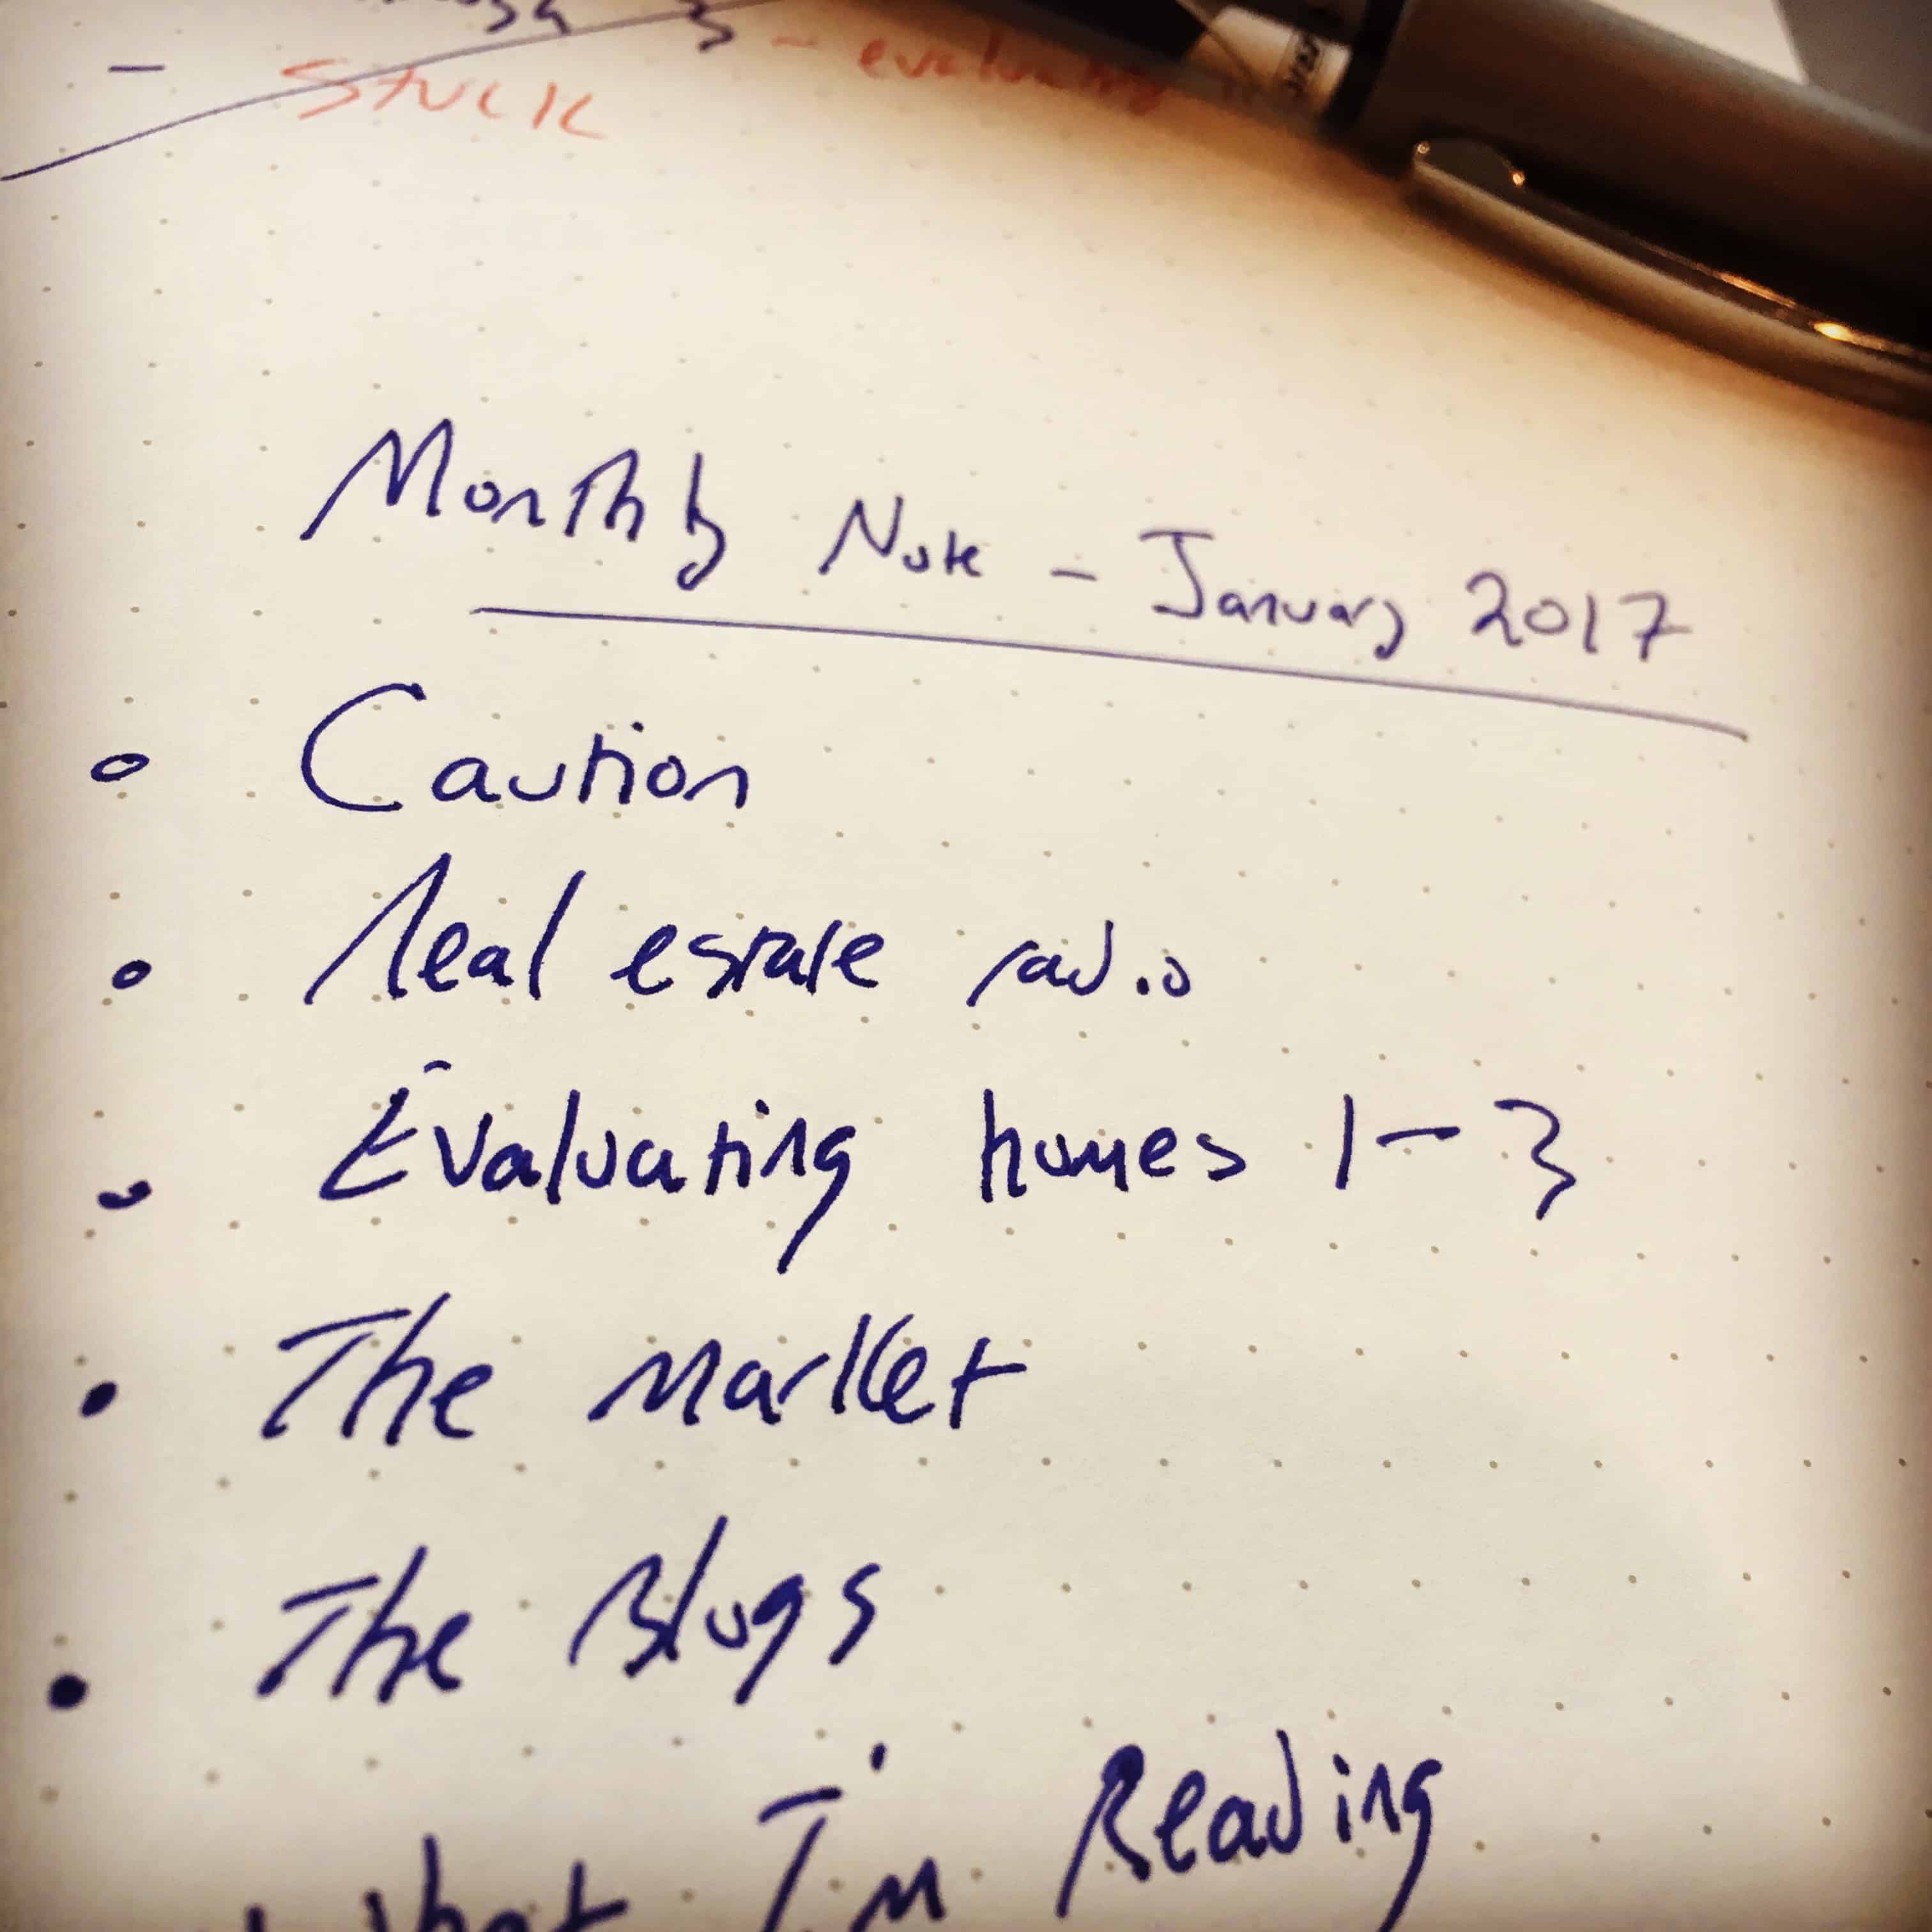 - Stuck - evaluating
Monthly Note - January 2017
Caution
Real estate radio
Evaluating homes 1-3
The Market
The Blogs
What I'm Reading